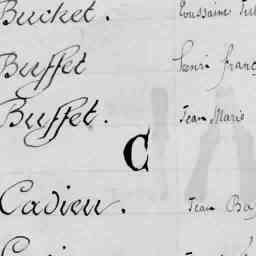 Bucket. Toussaint
Buffet henri
Buffet. Jean Marie
C
Cadieu. Jean